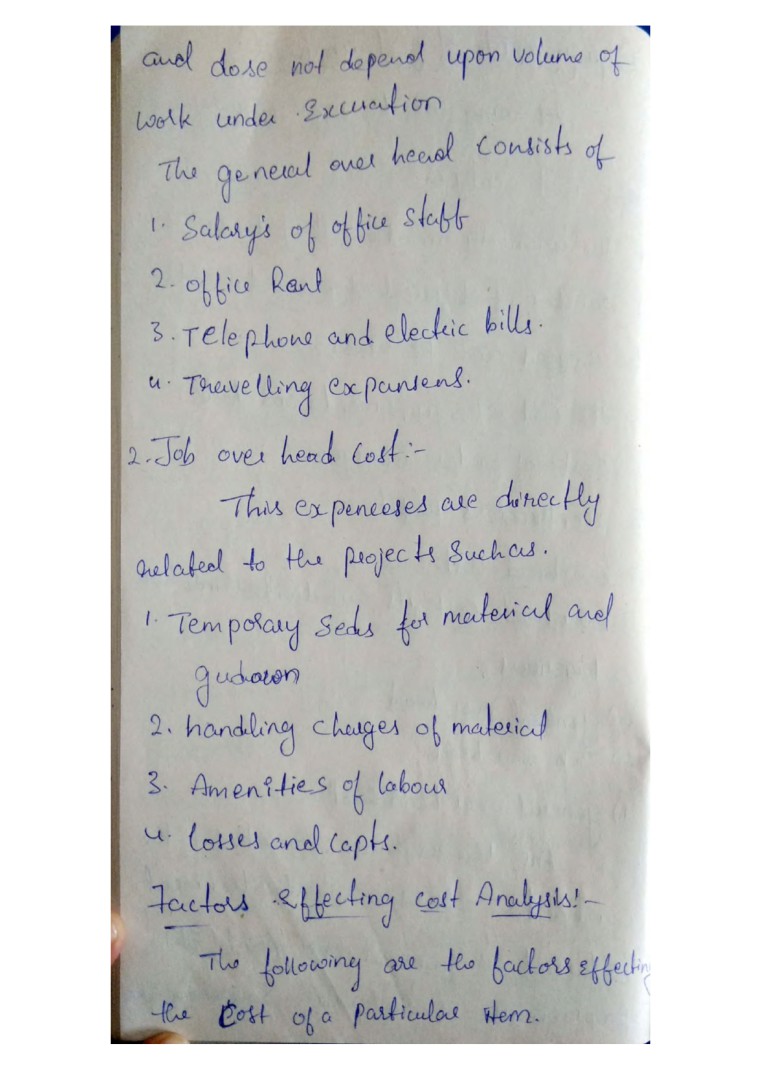 and dose not depend upon volume of
work under Excuation
The general over head consists of
1. Salary's of office staff
2. office Rant
3. Telephone and electric bills.
4. Travelling expansens.
2. Job over head cost:-
This expenceses are directly
related to the projects Such as.
1. Temporary Seds for material and
gudown
2. handling charges of material
3. Amenities of labour
4. losses and capts.
Factors effecting cost Analysis:-
The following are the factors effecting
the Cost of a particular item.